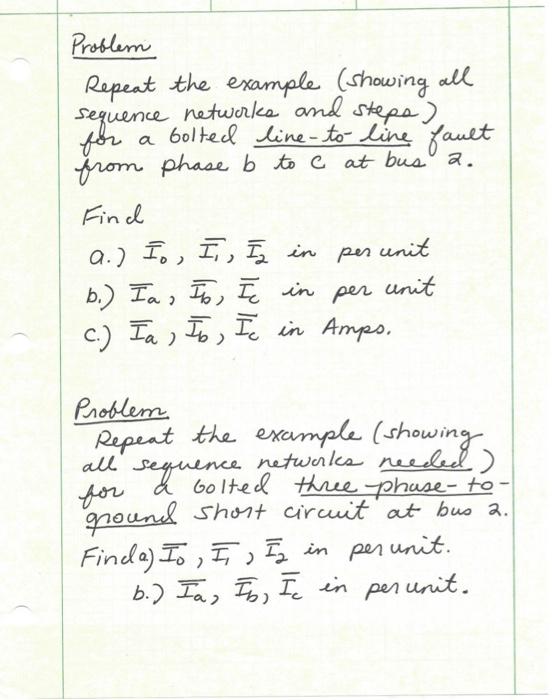 Problem
Repeat the example (showing all
sequence networks and steps)
for a bolted line-to-line fault
from phase b to c at bus 2.
Find
a.) I̅₀, I̅₁, I̅₂ in per unit
b.) I̅a, I̅b, I̅c in per unit
c.) I̅a, I̅b, I̅c in Amps.
Problem
Repeat the example (showing
all sequence networks needed)
for a bolted three-phase-to-
ground short circuit at bus 2.
Find a) I̅₀, I̅₁, I̅₂ in per unit.
b.) I̅a, I̅b, I̅c in per unit.